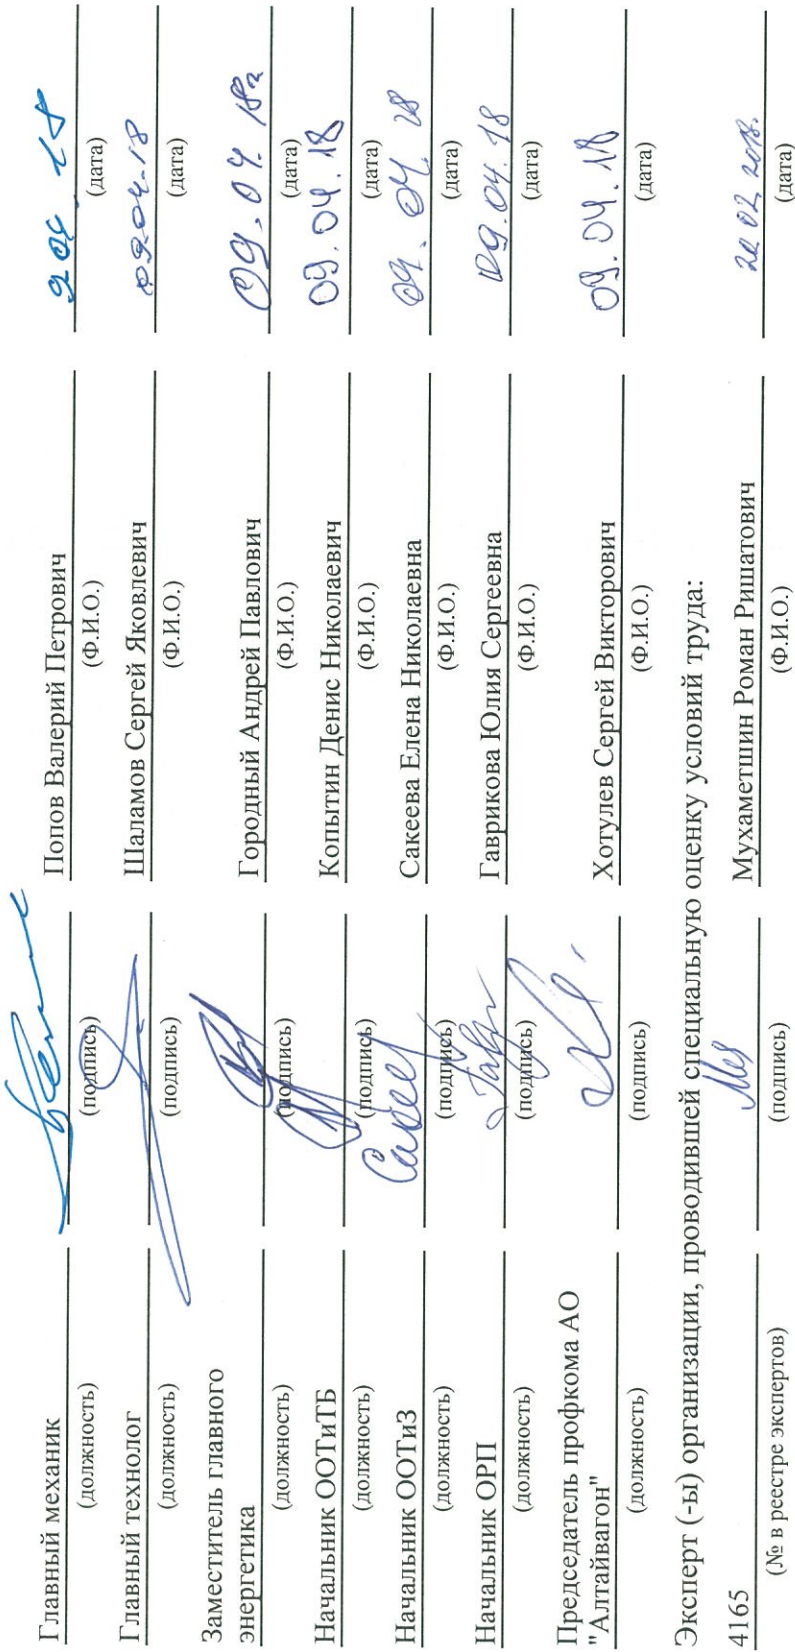 Главный механик Попов Валерий Петрович
(должность) (подпись) (Ф.И.О.) (дата)
Главный технолог Шаламов Сергей Яковлевич 09.04.18
(должность) (подпись) (Ф.И.О.) (дата)
Заместитель главного
энергетика Городный Андрей Павлович 09.04.18г
(должность) (подпись) (Ф.И.О.) (дата)
Начальник ООТиТБ Копытин Денис Николаевич 09.04.18
(должность) (подпись) (Ф.И.О.) (дата)
Начальник ООТиЗ Сакеева Елена Николаевна 09.04.18
(должность) (подпись) (Ф.И.О.) (дата)
Начальник ОРП Гаврикова Юлия Сергеевна 09.04.18
(должность) (подпись) (Ф.И.О.) (дата)
Председатель профкома АО
"Алтайвагон" Хотулев Сергей Викторович 09.04.18
(должность) (подпись) (Ф.И.О.) (дата)
Эксперт (-ы) организации, проводившей специальную оценку условий труда:
4165 Мухаметшин Роман Ришатович 20.02.2018.
(№ в реестре экспертов) (подпись) (Ф.И.О.) (дата)